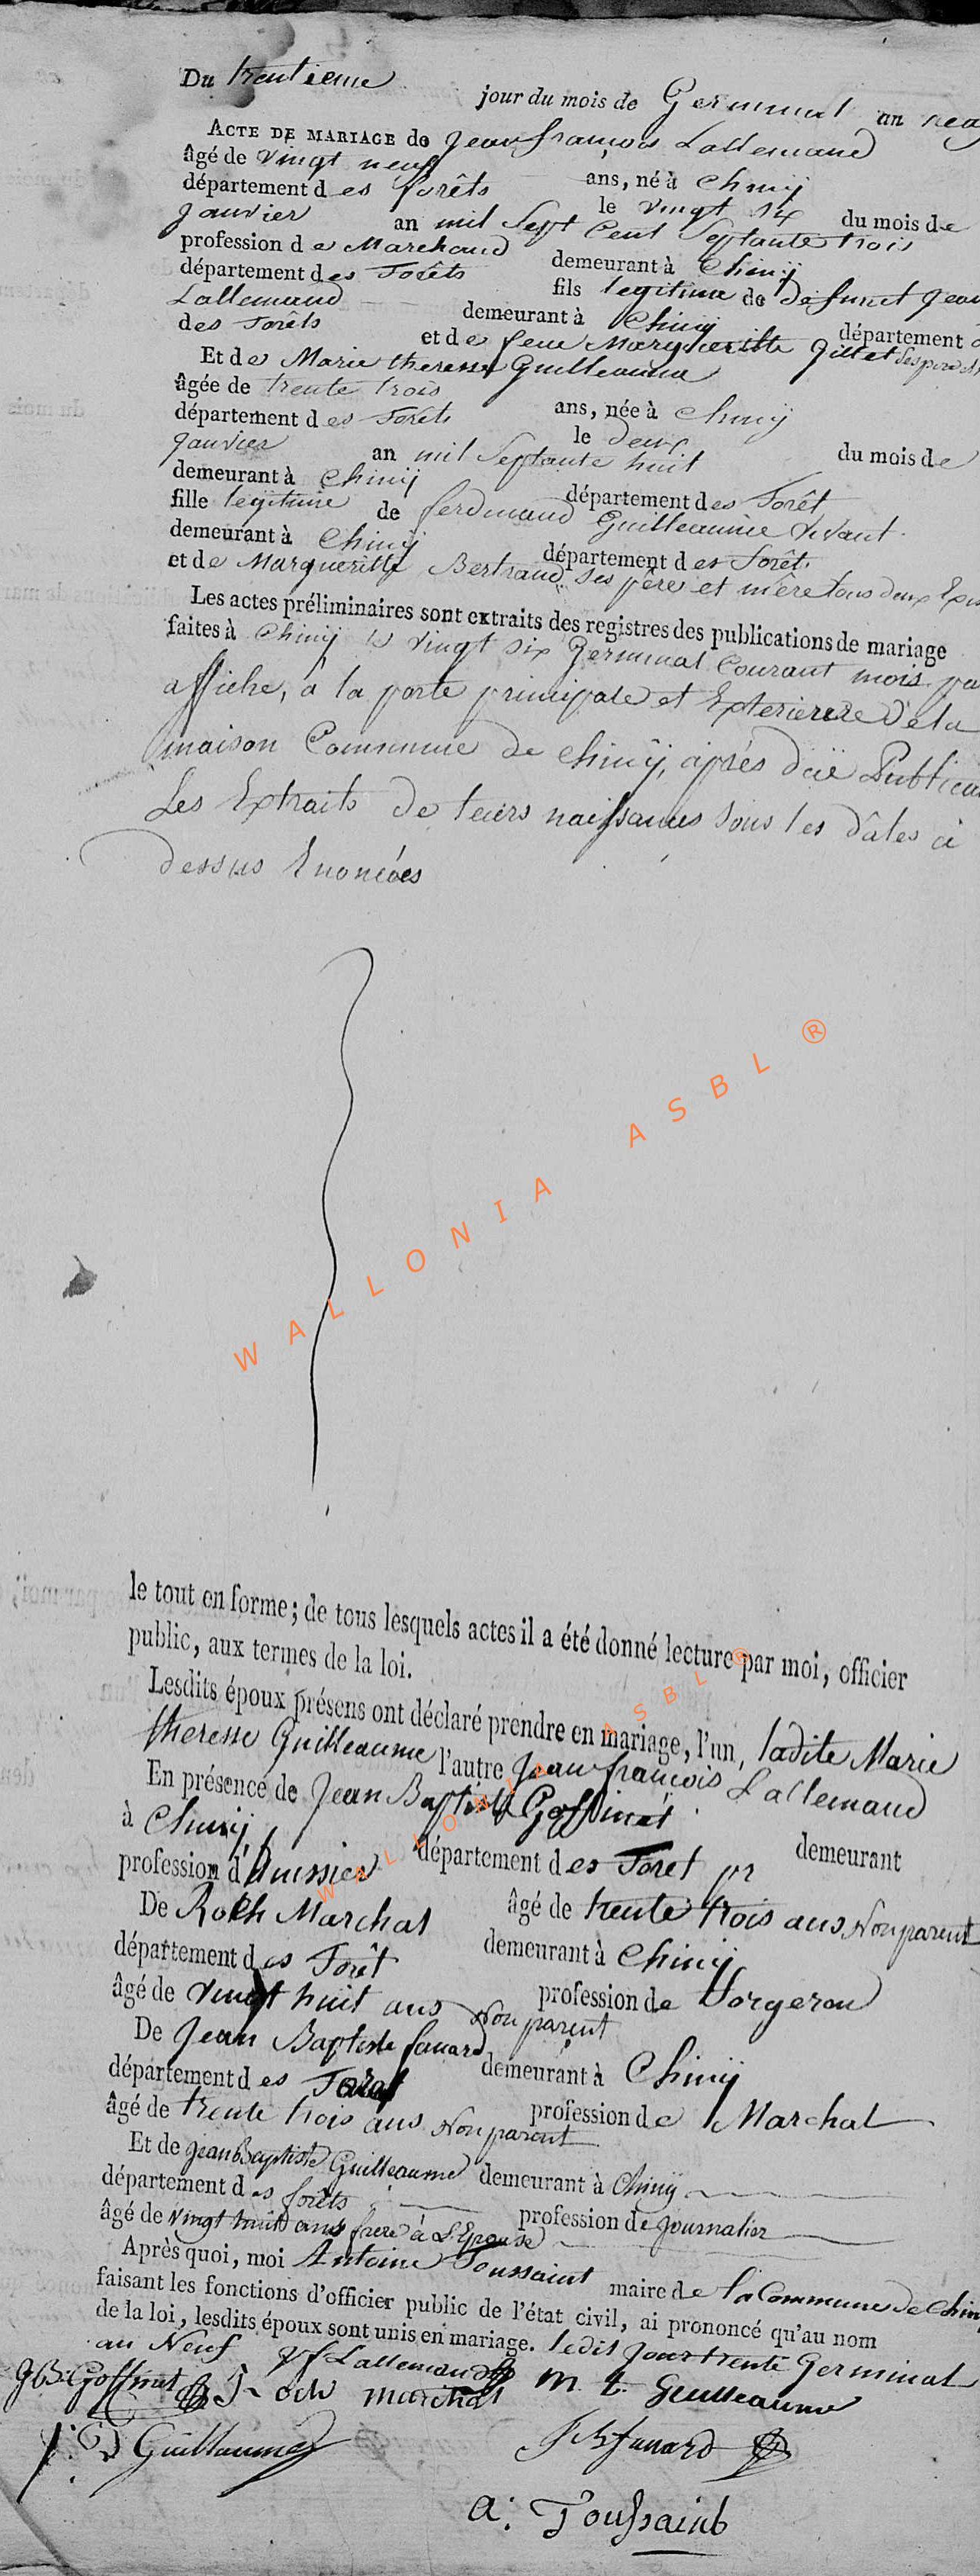 Du trentieme jour du mois de Germinal an
ACTE DE MARIAGE de Jean françois Lallemand
âgé de vingt neuf ans, né à Chiny
département des forêts le vingt six du mois de
janvier an mil Sept Cent Septante trois
profession de Marchand demeurant à Chiny
département des Forêts fils legitime de defunct Jean
Lallemand demeurant à Chiny département
des Forêts et de feue Margueritte Gillet
Et de Marie theresse Guilleaume
âgée de trente trois ans, née à Chiny
département des Forêts le deux du mois de
janvier an mil Septante huit
demeurant à Chiny département des Forêt
fille legitime de ferdinand Guilleaume vivant
demeurant à Chiny département des Forêt
et de Margueritte Bertrand ses père et mère tous deux
Les actes préliminaires sont extraits des registres des publications de mariage
faites à Chiny le vingt six Germinal Courant mois
affiche, à la porte principale et Exterieure de la
maison Commune de Chiny, après
Les Extraits de leurs naissances sous les dâtes ci
dessus Enoncées
WALLONIA ASBL ®
le tout en forme; de tous lesquels actes il a été donné lecture par moi, officier
public, aux termes de la loi.
Lesdits époux présens ont déclaré prendre en mariage, l'un, ladite Marie
theresse Guilleaume l'autre Jean françois Lallemand
En présence de Jean Baptiste Goffinet demeurant
à Chiny département des Foret
profession d'huissier âgé de trente trois ans Non parent
De Roch Marchal demeurant à Chiny
département des Forêt profession de Forgeron
âgé de vingt huit ans Non parent
De Jean Baptiste fanard demeurant à Chiny
département des Foret profession de Marchal
âgé de trente trois ans Non parent
Et de jean Baptiste Guilleaume demeurant à Chiny
département des forêts profession de journalier
âgé de vingt huit ans frere à L'Epouse
Après quoi, moi Antoine Toussaint maire de la Commune de
faisant les fonctions d'officier public de l'état civil, ai prononcé qu'au nom
de la loi, lesdits époux sont unis en mariage. ledit jour trente Germinal
an Neuf jf Lallemand m. t. Guilleaume
JB: Goffinet Roch marchal
Guillaume JB fanard
a: Toussaint
WALLONIA ASBL ®